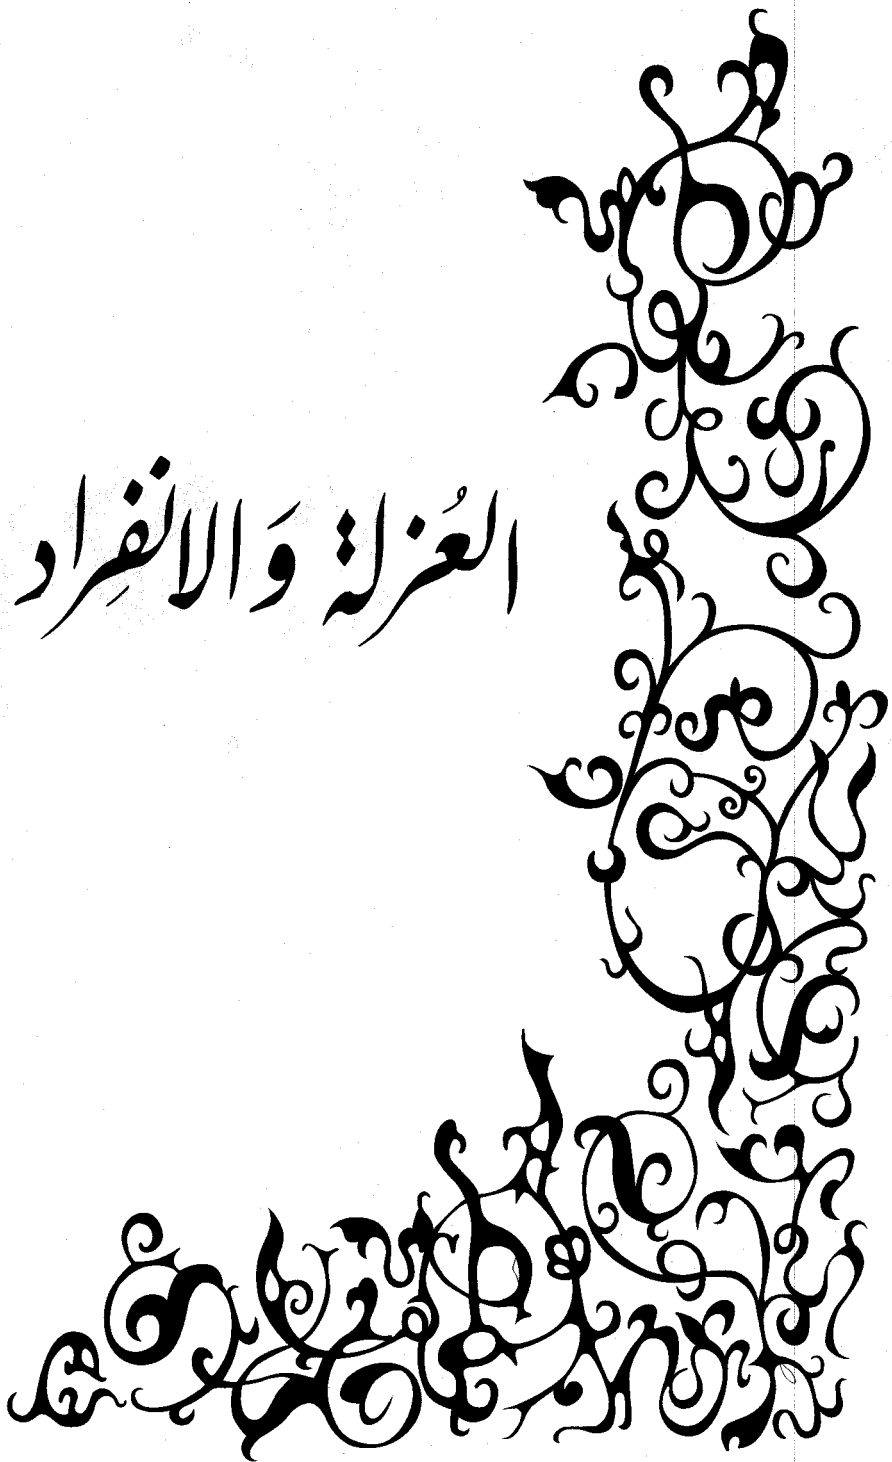 العُزلة وَالانفِراد